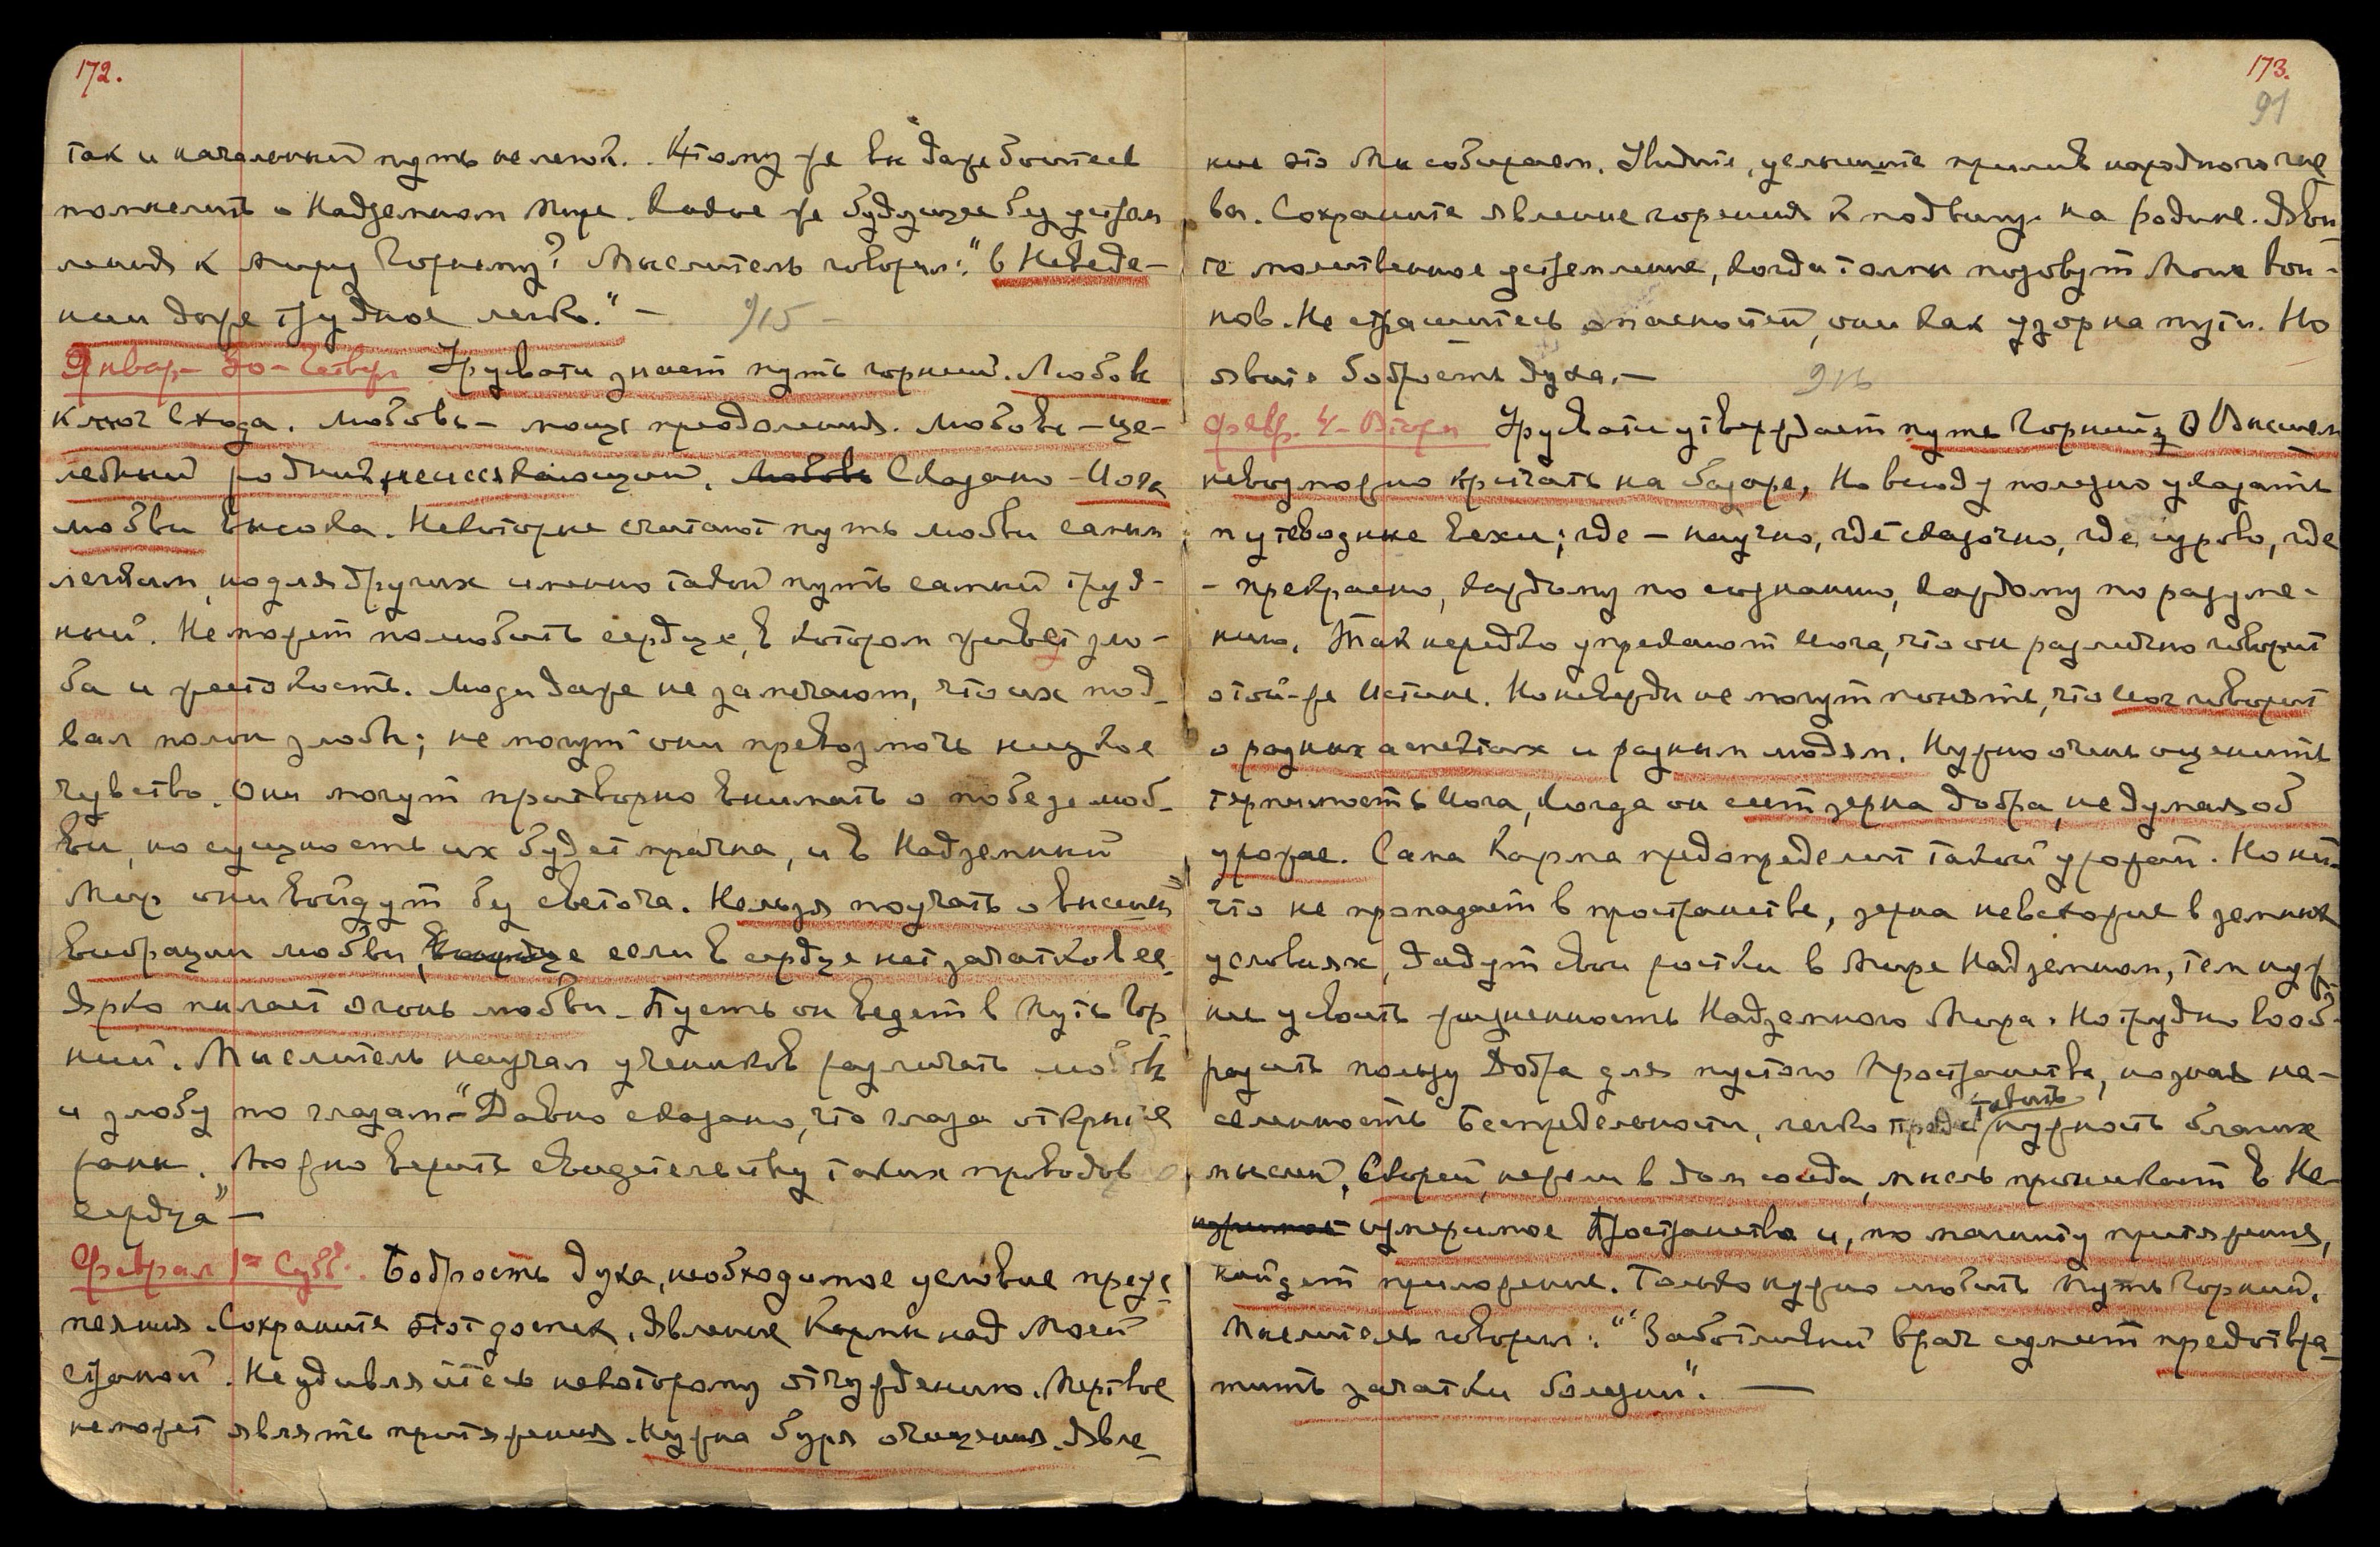 172.
так и начальный путь нелегок. К тому же вы даже боитесь
помыслить о Надземном Мире. Какое же будущее без устрем
ления к миру Горнему? Мыслитель говорил: "в Неведе-
нии даже трудное легко." —
915 —
Январ- 30 - Четверг Урусвати знает путь горний. Любовь
ключ входа. Любовь - мощь преодоления. Любовь - це-
лебный родник неиссякающий. Любовь Сказано - Йога
любви высока. Некоторые считают путь любви самым
легким, но для других именно такой путь самый труд-
ный. Не может полюбить сердце, в котором живет зло-
ба и жестокость. Люди даже не замечают, что их под-
вал полон злобы; не могут они превозмочь низкое
чувство. Они могут притворно внимать о победе люб-
ви, но сущность их будет мрачна, и в Надземный
Мир они войдут без светоча. Нельзя поучать о высшей
вибрации любви, если в сердце нет зачатков ее.
Ярко пылает огонь любви. Пусть он ведет в Путь Гор
ний. Мыслитель научал учеников различать любовь
и злобу по глазам - "Давно сказано, что глаза открытые
раны. Можно верить свидетельству таких проводов
сердца" —
Феврал 1ое Субб. Бодрость духа, необходимое условие преус
пеяния. Сохраните этот доспех. Явление Кармы над Моей
страной. Не удивляйтесь некоторому отчуждению. Мертвое
не может являть притяжения. Нужна буря очищения. Явле-
173.
91
ние это Мы собираем. Увидите, услышите прилив народного гне
ва. Сохраните явление горения к подвигу на родине. Яви
те молитвенное устремление, когда толпы позовут Моих вои-
нов. Не страшитесь опасностей, они как узор на пути. Но
явите бодрость духа. —
916
Февр. 4 - Вторн Урусвати утверждает путь Горний. О Высшем
невозможно кричать на базаре, Но всюду полезно указать
путеводные вехи; где - научно, где сказочно, где сурово, где
- прекрасно, каждому по сознанию, каждому по разуме-
нию. Так нередко упрекают Йога, что он различно говорит
о той-же Истине. Но невежды не могут понять, что Йог говорит
о разных аспектах и разным людям. Нужно очень оценить
терпимость Йога, когда он сеет зерна добра, не думая об
урожае. Сама Карма предопределит такой урожай. Но ни-
что не пропадает в пространстве, зерна невсхожие в земных
условиях, дадут свои ростки в Мире Надземном, тем нуж
нее усвоить жизненность Надземного Мира. Но трудно вооб-
разить пользу Добра для пустого Пространства, но зная на-
селенность Беспредельности, легко представить нужность благих
мыслей. Скорей, нежели в дом соседа, мысль проникает в Не-
измеримое Пространство и, по магниту притяжения,
найдет приложение. Только нужно любить Путь Горний.
Мыслитель говорил: "Заботливый врач сумеет предотвра-
тить зачатки болезни". —